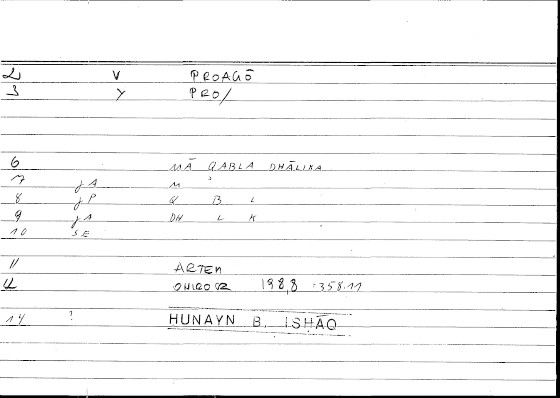 2 V PROAGŌ
3 Y PRO/
6 MĀ QABLA DHĀLIKA
7 jA M
8 jP Q B L
9 jA DH L K
10 SE
11 ARTEM
ONIROCR 198,8 =358.11
14 ? HUNAYN B. ISHĀQ